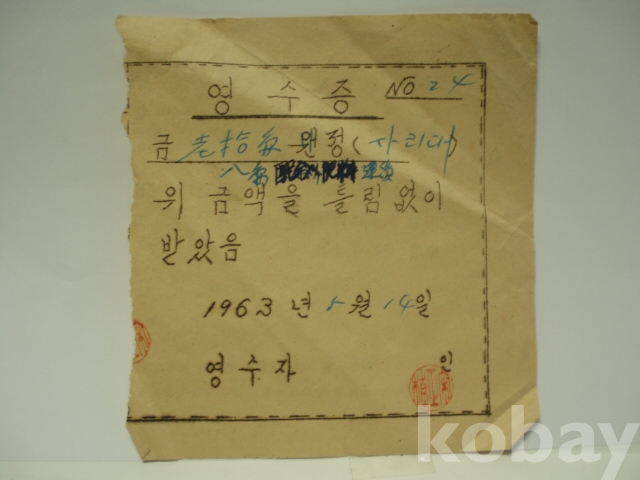 영수증 NO 24
금 원정(사리다)
위 금액을 틀림없이
받았음
1963년 5월 14일
영수자 인
kobay